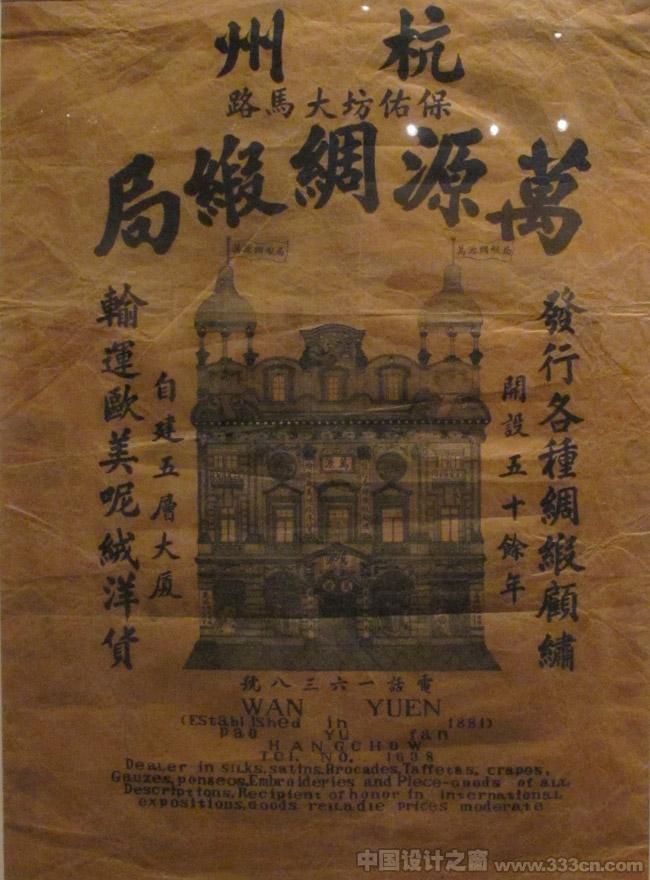 杭州
保佑坊大馬路
萬源綢緞局
萬源綢緞局
萬源綢緞局
發行各種綢緞顧繡
開設五十餘年
自建五層大厦
輸運歐美呢絨洋貨
萬源
電話一六三八號
WAN YUEN
(EStablIShed in 1881)
pao YU fan
HANGCHOW
TEl. NO. 1638
Dealer in sILKS.satins.Brocades.Taffetas. crapes.
Gauzes.ponseos.Embroideries and Piece-Goods of aLL
Descriptions. Recipient of honor in international
expositions.Goods reiladie prices moderate
中国设计之窗 www.333cn.com